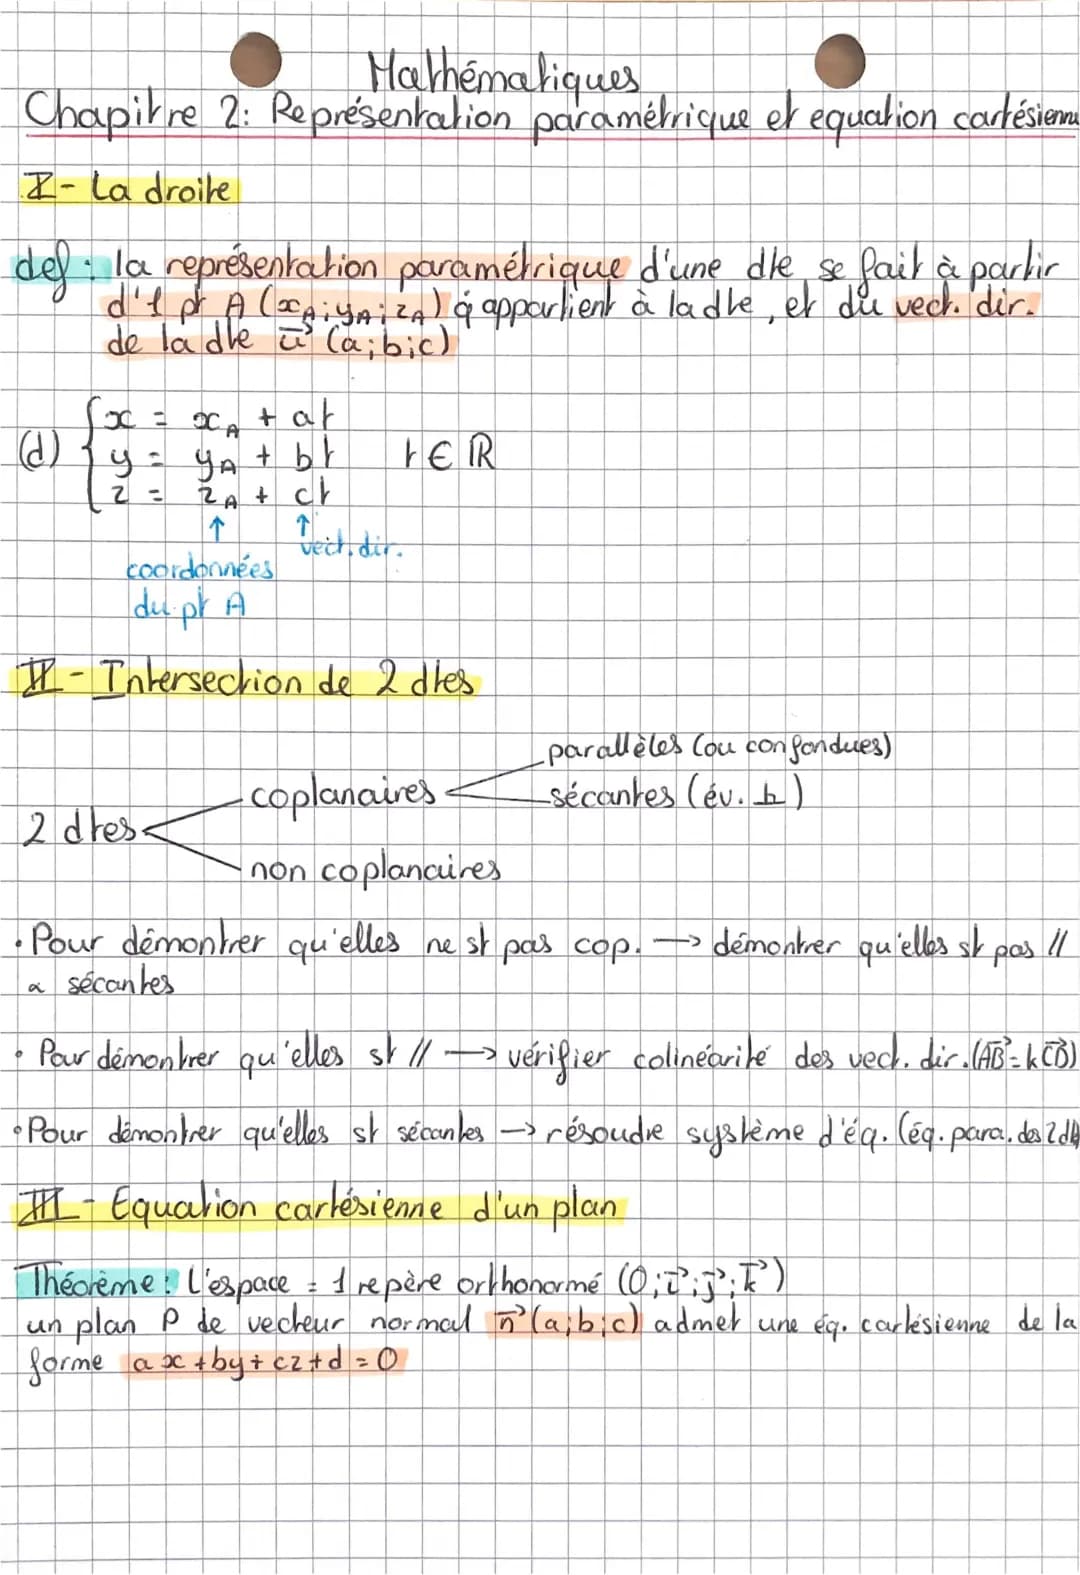 Mathématiques
Chapitre 2: Représentation paramétrique et equation cartésienne
I - La droite
def : la représentation paramétrique d'une dte se fait à partir
d'1 pt A (xA; yA; zA) q appartient à la dte, et du vect. dir.
de la dte u⃗ (a;b;c)
(d) { x = xA + at
y = yA + bt t ∈ ℝ
z = zA + ct
↑ ↑
vect. dir.
coordonnées
du pt A
II - Intersection de 2 dtes
parallèles (ou confondues)
coplanaires
sécantes (év. ⊥)
2 dtes
non coplanaires
• Pour démontrer qu'elles ne st pas cop. → démontrer qu'elles st pas //
sécantes
• Pour démontrer qu'elles st // → vérifier colinéarité des vect. dir. (AB⃗ = k CD⃗)
• Pour démontrer qu'elles st sécantes → résoudre système d'éq. (éq. para. des 2 dt
III - Equation cartésienne d'un plan
Théorème : L'espace = 1 repère orthonormé (O; i⃗; j⃗; k⃗)
un plan P de vecteur normal n⃗ (a;b;c) admet une éq. cartésienne de la
forme ax + by + cz + d = 0